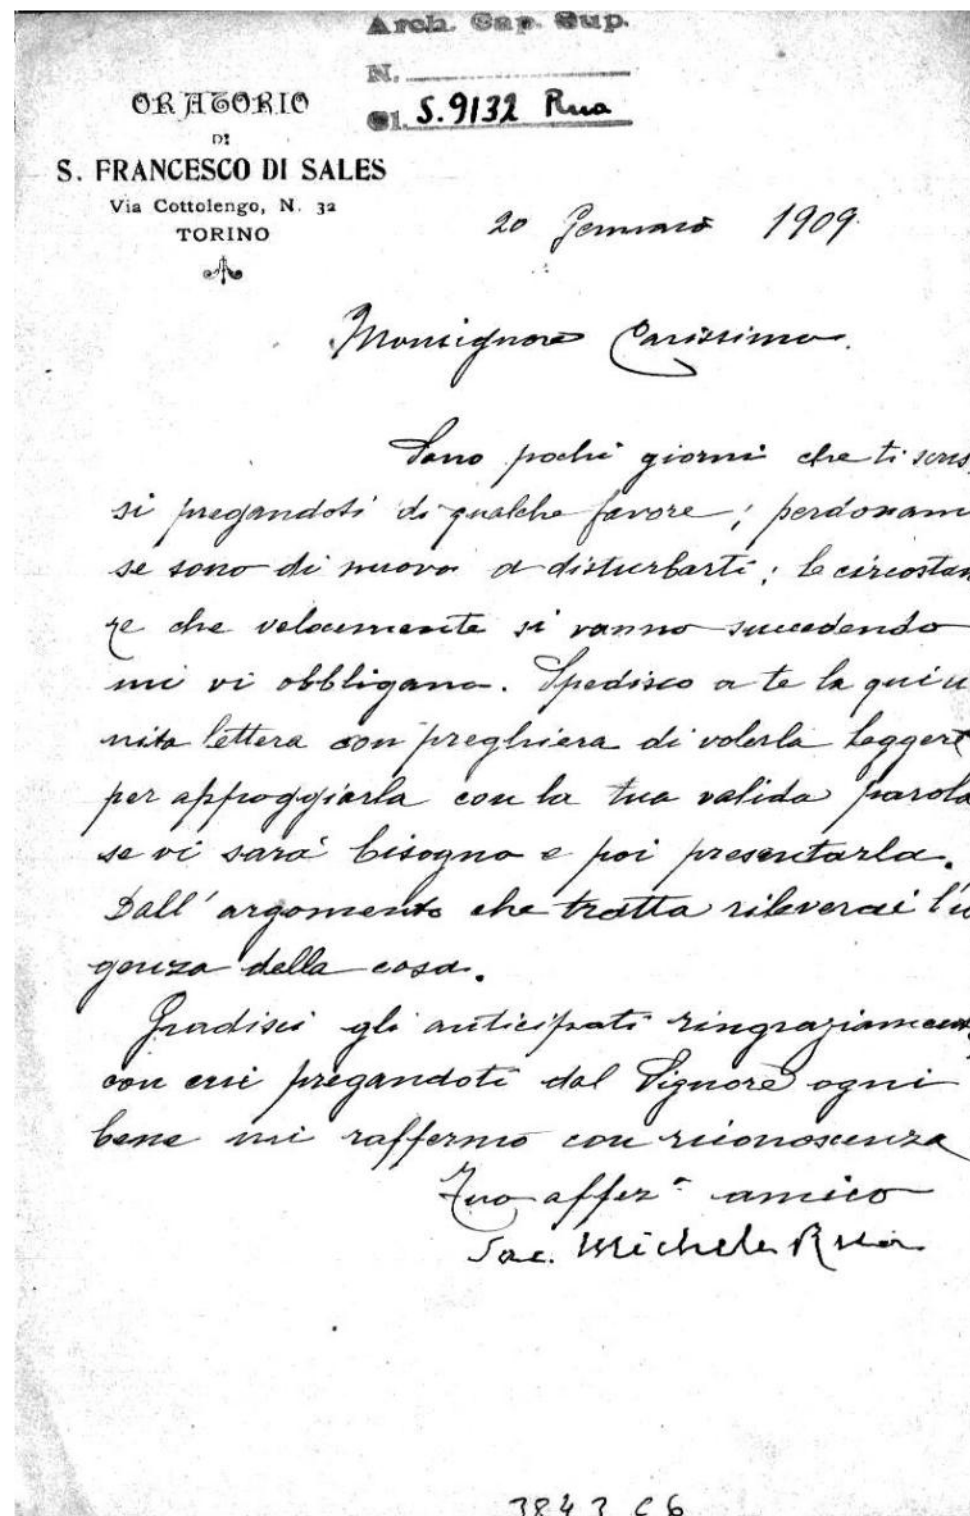 Arch. Cap. Sup.
N.
Cl. S.9132 Rua
ORATORIO
DI
S. FRANCESCO DI SALES
Via Cottolengo, N. 32
TORINO
20 Gennaio 1909.
Monsignore Carissimo.
Sono pochi giorni che ti scris
si pregandoti di qualche favore; perdonam
se sono di nuovo a disturbarti; le circostan
ze che velocemente si vanno succedendo
mi vi obbligano. Spedisco a te la qui u
nita lettera con preghiera di volerla leggere
per appoggiarla con la tua valida parola
se vi sarà bisogno e poi presentarla.
Dall'argomento che tratta rileverai l'u
genza della cosa.
Gradisci gli anticipati ringraziamen
con cui pregandoti dal Signore ogni
bene mi raffermo con riconoscenza
Tuo affez.º amico
Sac. Michele Rua
3843 C6